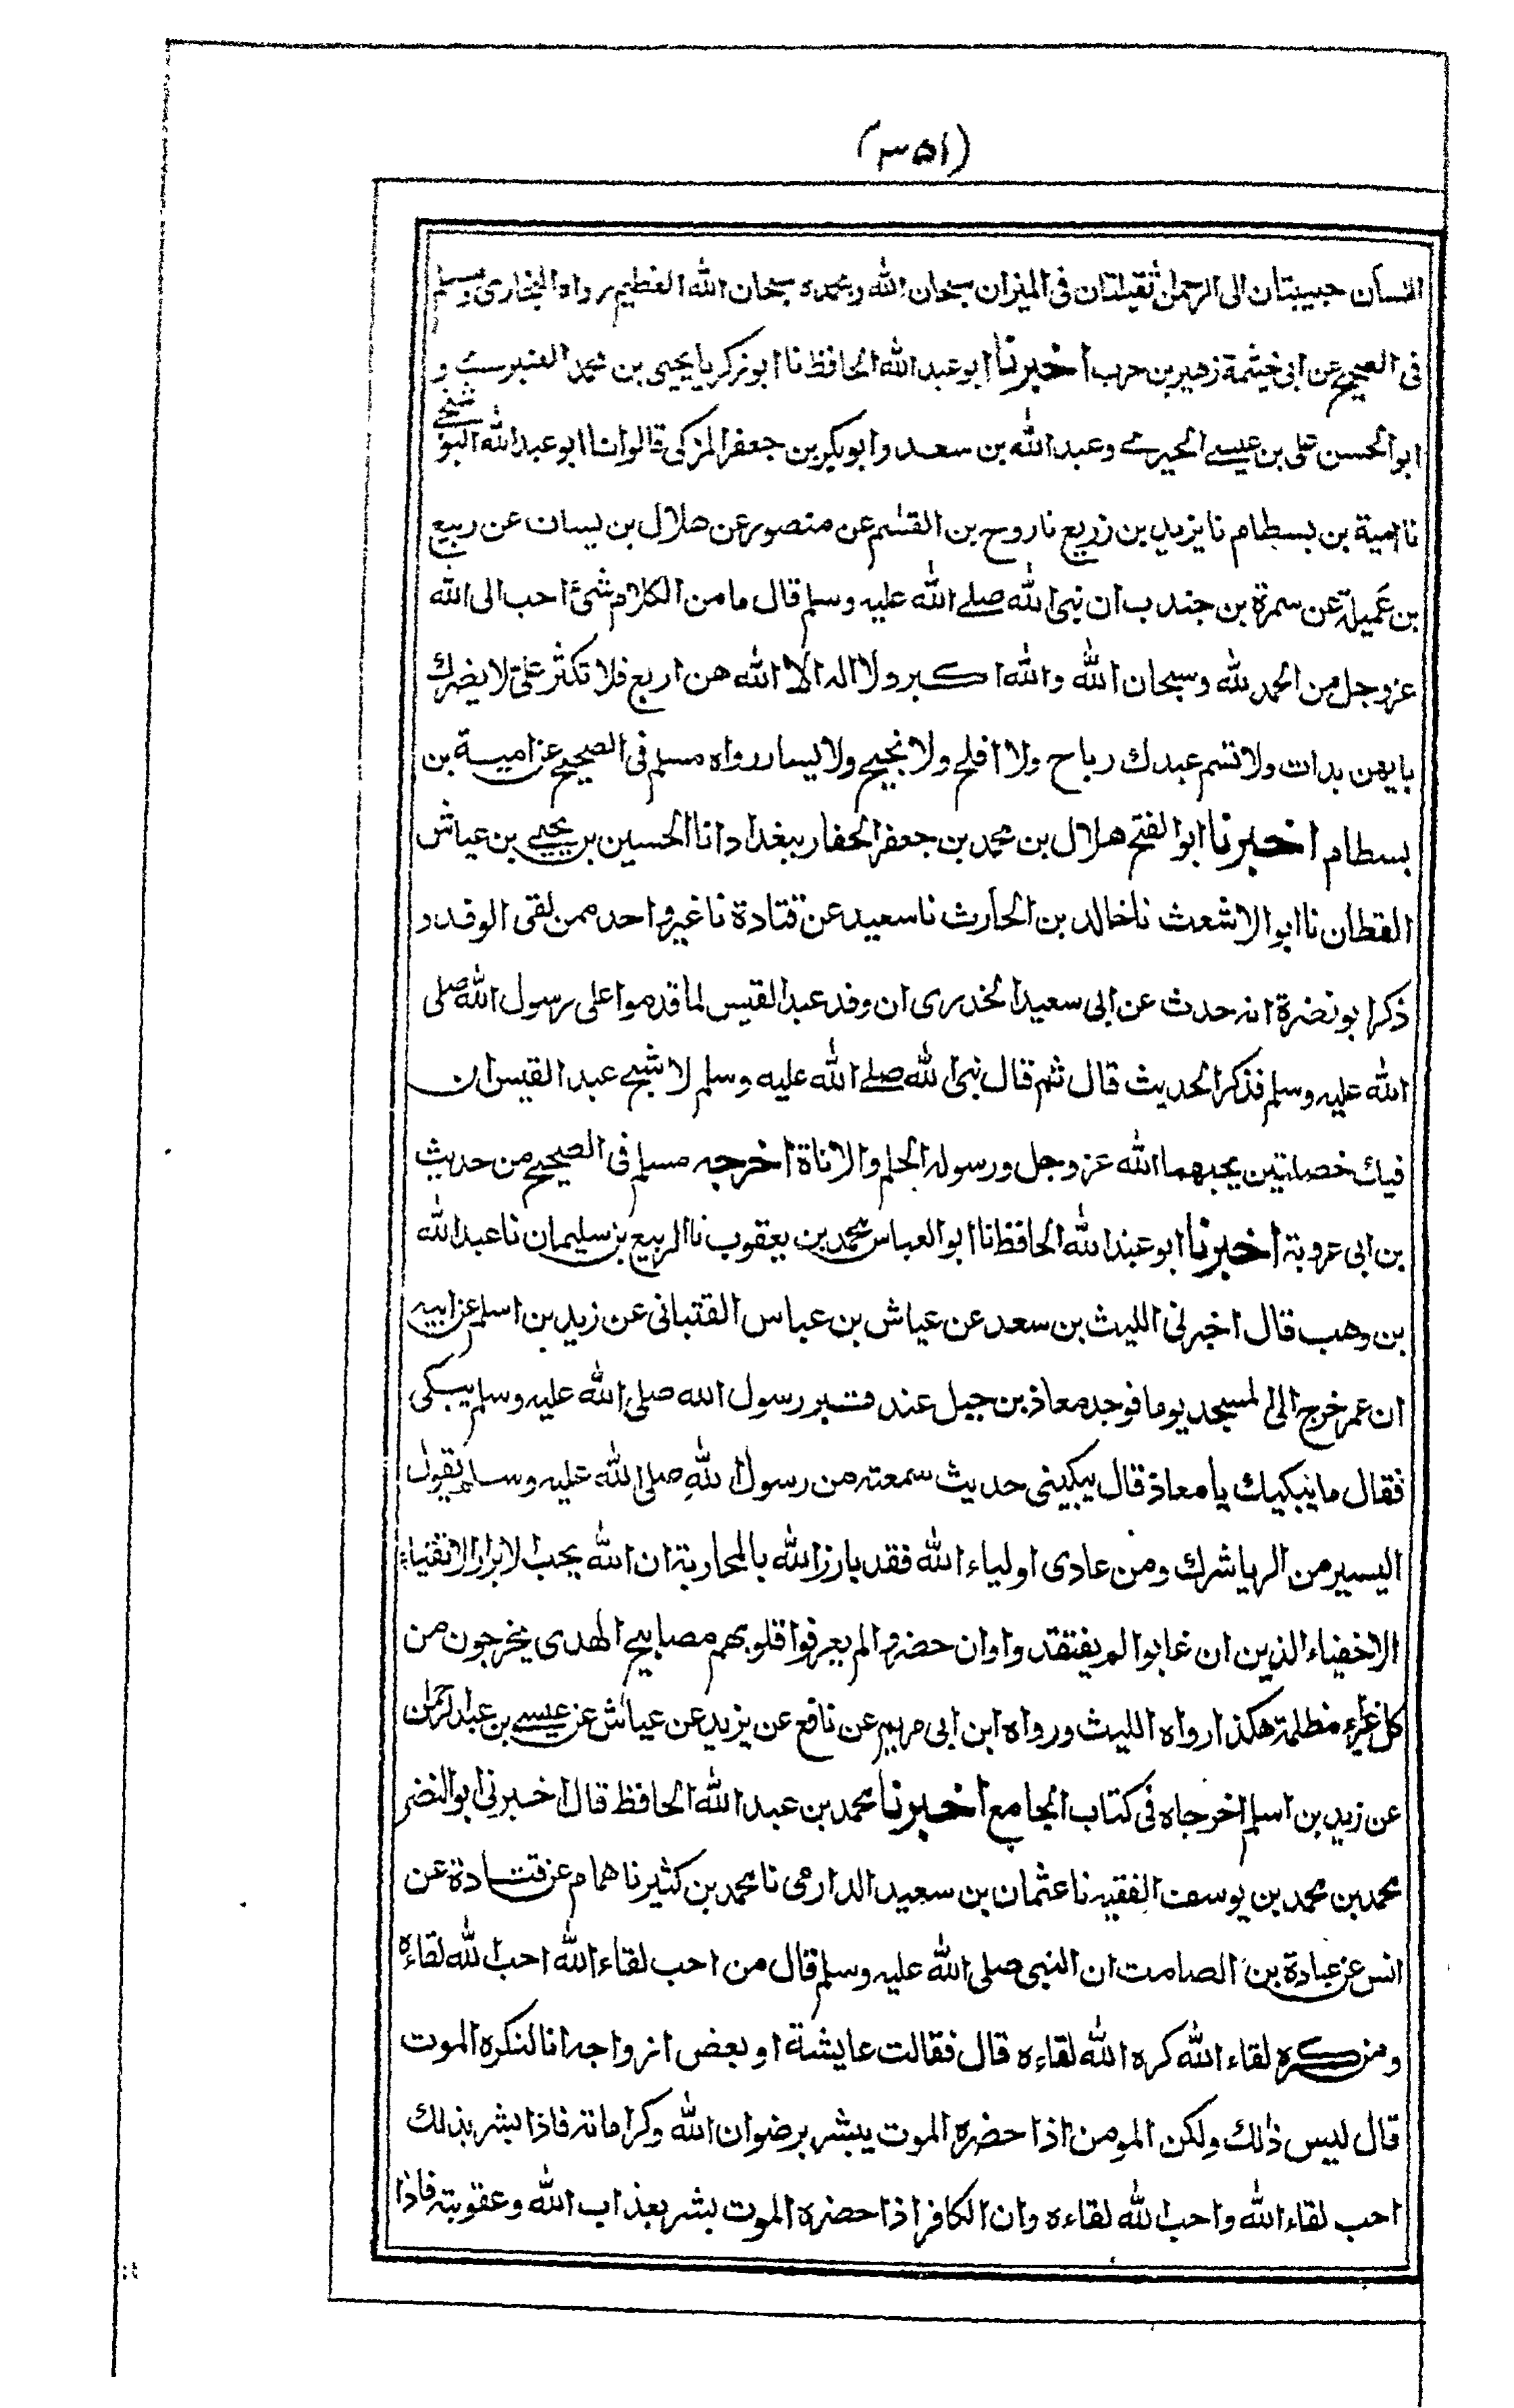 (٣٥١)
اللسان حبيبتان الى الرحمن ثقيلتان فى الميزان سبحان الله وبحمده سبحان الله العظيم رواه البخارى ومسلم
فى الصحيح عن ابى خيثمة زهير بن حرب اخبرنا ابو عبد الله الحافظ نا ابو زكريا يحيى بن محمد العنبرى و
ابو الحسن على بن عيسى الحيرى وعبد الله بن سعد وابو بكر بن جعفر المزكى قالوا نا ابو عبد الله البوشنجى
نا امية بن بسطام نا يزيد بن زريع نا روح بن القسم عن منصور عن هلال بن يسان عن ربيع
بن عميلة عن سمرة بن جندب ان نبى الله صلى الله عليه وسلم قال ما من الكلام شئ احب الى الله
عز وجل من الحمد لله وسبحان الله والله اكبر ولا اله الا الله هن اربع فلا تكثر على لا يضرك
بايهن بدات ولا تسم عبدك رباح ولا افلح ولا نجيح ولا يسار رواه مسلم فى الصحيح عن امية بن
بسطام اخبرنا ابو الفتح هلال بن محمد بن جعفر الحفار ببغداد انا الحسين بن يحيى بن عياش
القطان نا ابو الاشعث نا خالد بن الحارث نا سعيد عن قتادة نا غير واحد ممن لقى الوفد و
ذكر ابو نضرة انه حدث عن ابى سعيد الخدرى ان وفد عبد القيس لما قدموا على رسول الله صلى
الله عليه وسلم فذكر الحديث قال ثم قال نبى الله صلى الله عليه وسلم لاشج عبد القيس ان
فيك خصلتين يحبهما الله عز وجل ورسوله الحلم والاناة اخرجه مسلم فى الصحيح من حديث
بن ابى عروبة اخبرنا ابو عبد الله الحافظ نا ابو العباس محمد بن يعقوب نا الربيع بن سليمان نا عبد الله
بن وهب قال اخبرنى الليث بن سعد عن عياش بن عباس القتبانى عن زيد بن اسلم عن ابيه
ان عمر خرج الى المسجد يوما فوجد معاذ بن جبل عند قبر رسول الله صلى الله عليه وسلم يبكى
فقال ما يبكيك يا معاذ قال يبكينى حديث سمعته من رسول الله صلى الله عليه وسلم يقول
اليسير من الريا شرك ومن عادى اولياء الله فقد بارز الله بالمحاربة ان الله يحب الابرار الاتقياء
الاخفياء الذين ان غابوا لم يفتقدوا وان حضروا لم يعرفوا قلوبهم مصابيح الهدى يخرجون من
كل غبراء مظلمة هكذا رواه الليث ورواه ابن ابى مريم عن نافع عن يزيد عن عياش عن عيسى بن عبد الرحمان
عن زيد بن اسلم اخرجاه فى كتاب الجامع اخبرنا محمد بن عبد الله الحافظ قال اخبرنى ابو النضر
محمد بن محمد بن يوسف الفقيه نا عثمان بن سعيد الدارمى نا محمد بن كثير نا همام عن قتادة عن
انس عن عبادة بن الصامت ان النبى صلى الله عليه وسلم قال من احب لقاء الله احب الله لقاءه
ومن كره لقاء الله كره الله لقاءه قال فقالت عايشة او بعض ازواجه انا لنكره الموت
قال ليس ذلك ولكن المومن اذا حضره الموت يبشر برضوان الله وكراماته فاذا بشر بذلك
احب لقاء الله واحب الله لقاءه وان الكافر اذا حضره الموت بشر بعذاب الله وعقوبته فاذا